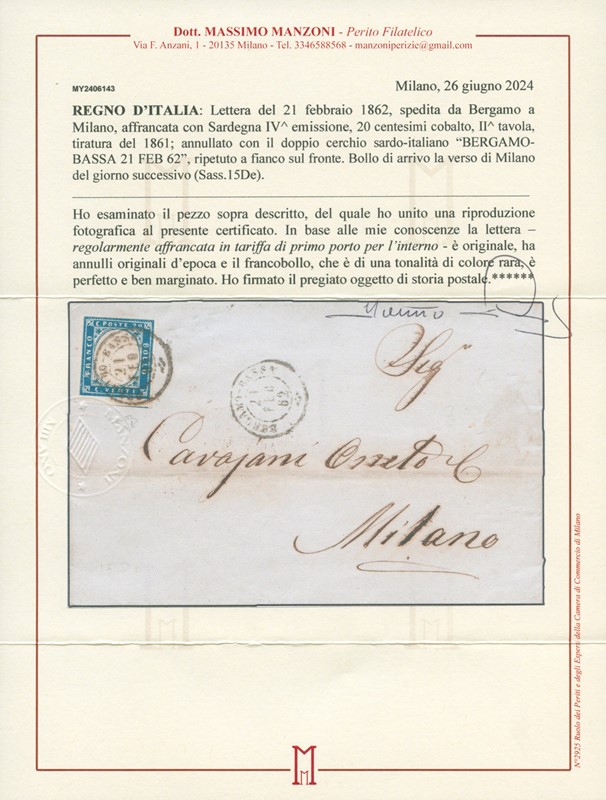 Dott. MASSIMO MANZONI - Perito Filatelico
Via F. Anzani, 1 - 20135 Milano - Tel. 3346588568 - manzoniperizie@gmail.com
MY2406143
Milano, 26 giugno 2024
REGNO D'ITALIA: Lettera del 21 febbraio 1862, spedita da Bergamo a
Milano, affrancata con Sardegna IV^ emissione, 20 centesimi cobalto, II^ tavola,
tiratura del 1861; annullato con il doppio cerchio sardo-italiano “BERGAMO-
BASSA 21 FEB 62”, ripetuto a fianco sul fronte. Bollo di arrivo la verso di Milano
del giorno successivo (Sass.15De).
Ho esaminato il pezzo sopra descritto, del quale ho unito una riproduzione
fotografica al presente certificato. In base alle mie conoscenze la lettera –
regolarmente affrancata in tariffa di primo porto per l'interno - è originale, ha
annulli originali d'epoca e il francobollo, che è di una tonalità di colore rara, è
perfetto e ben marginato. Ho firmato il pregiato oggetto di storia postale.******
C. POSTE 20
FRANCO
BOLLO
C. VENTI
BERGAMO-BASSA
21
FEB
62
MANZONI
MILANO
Sigr
Milano
N°2925 Ruolo dei Periti e degli Esperti della Camera di Commercio di Milano
M